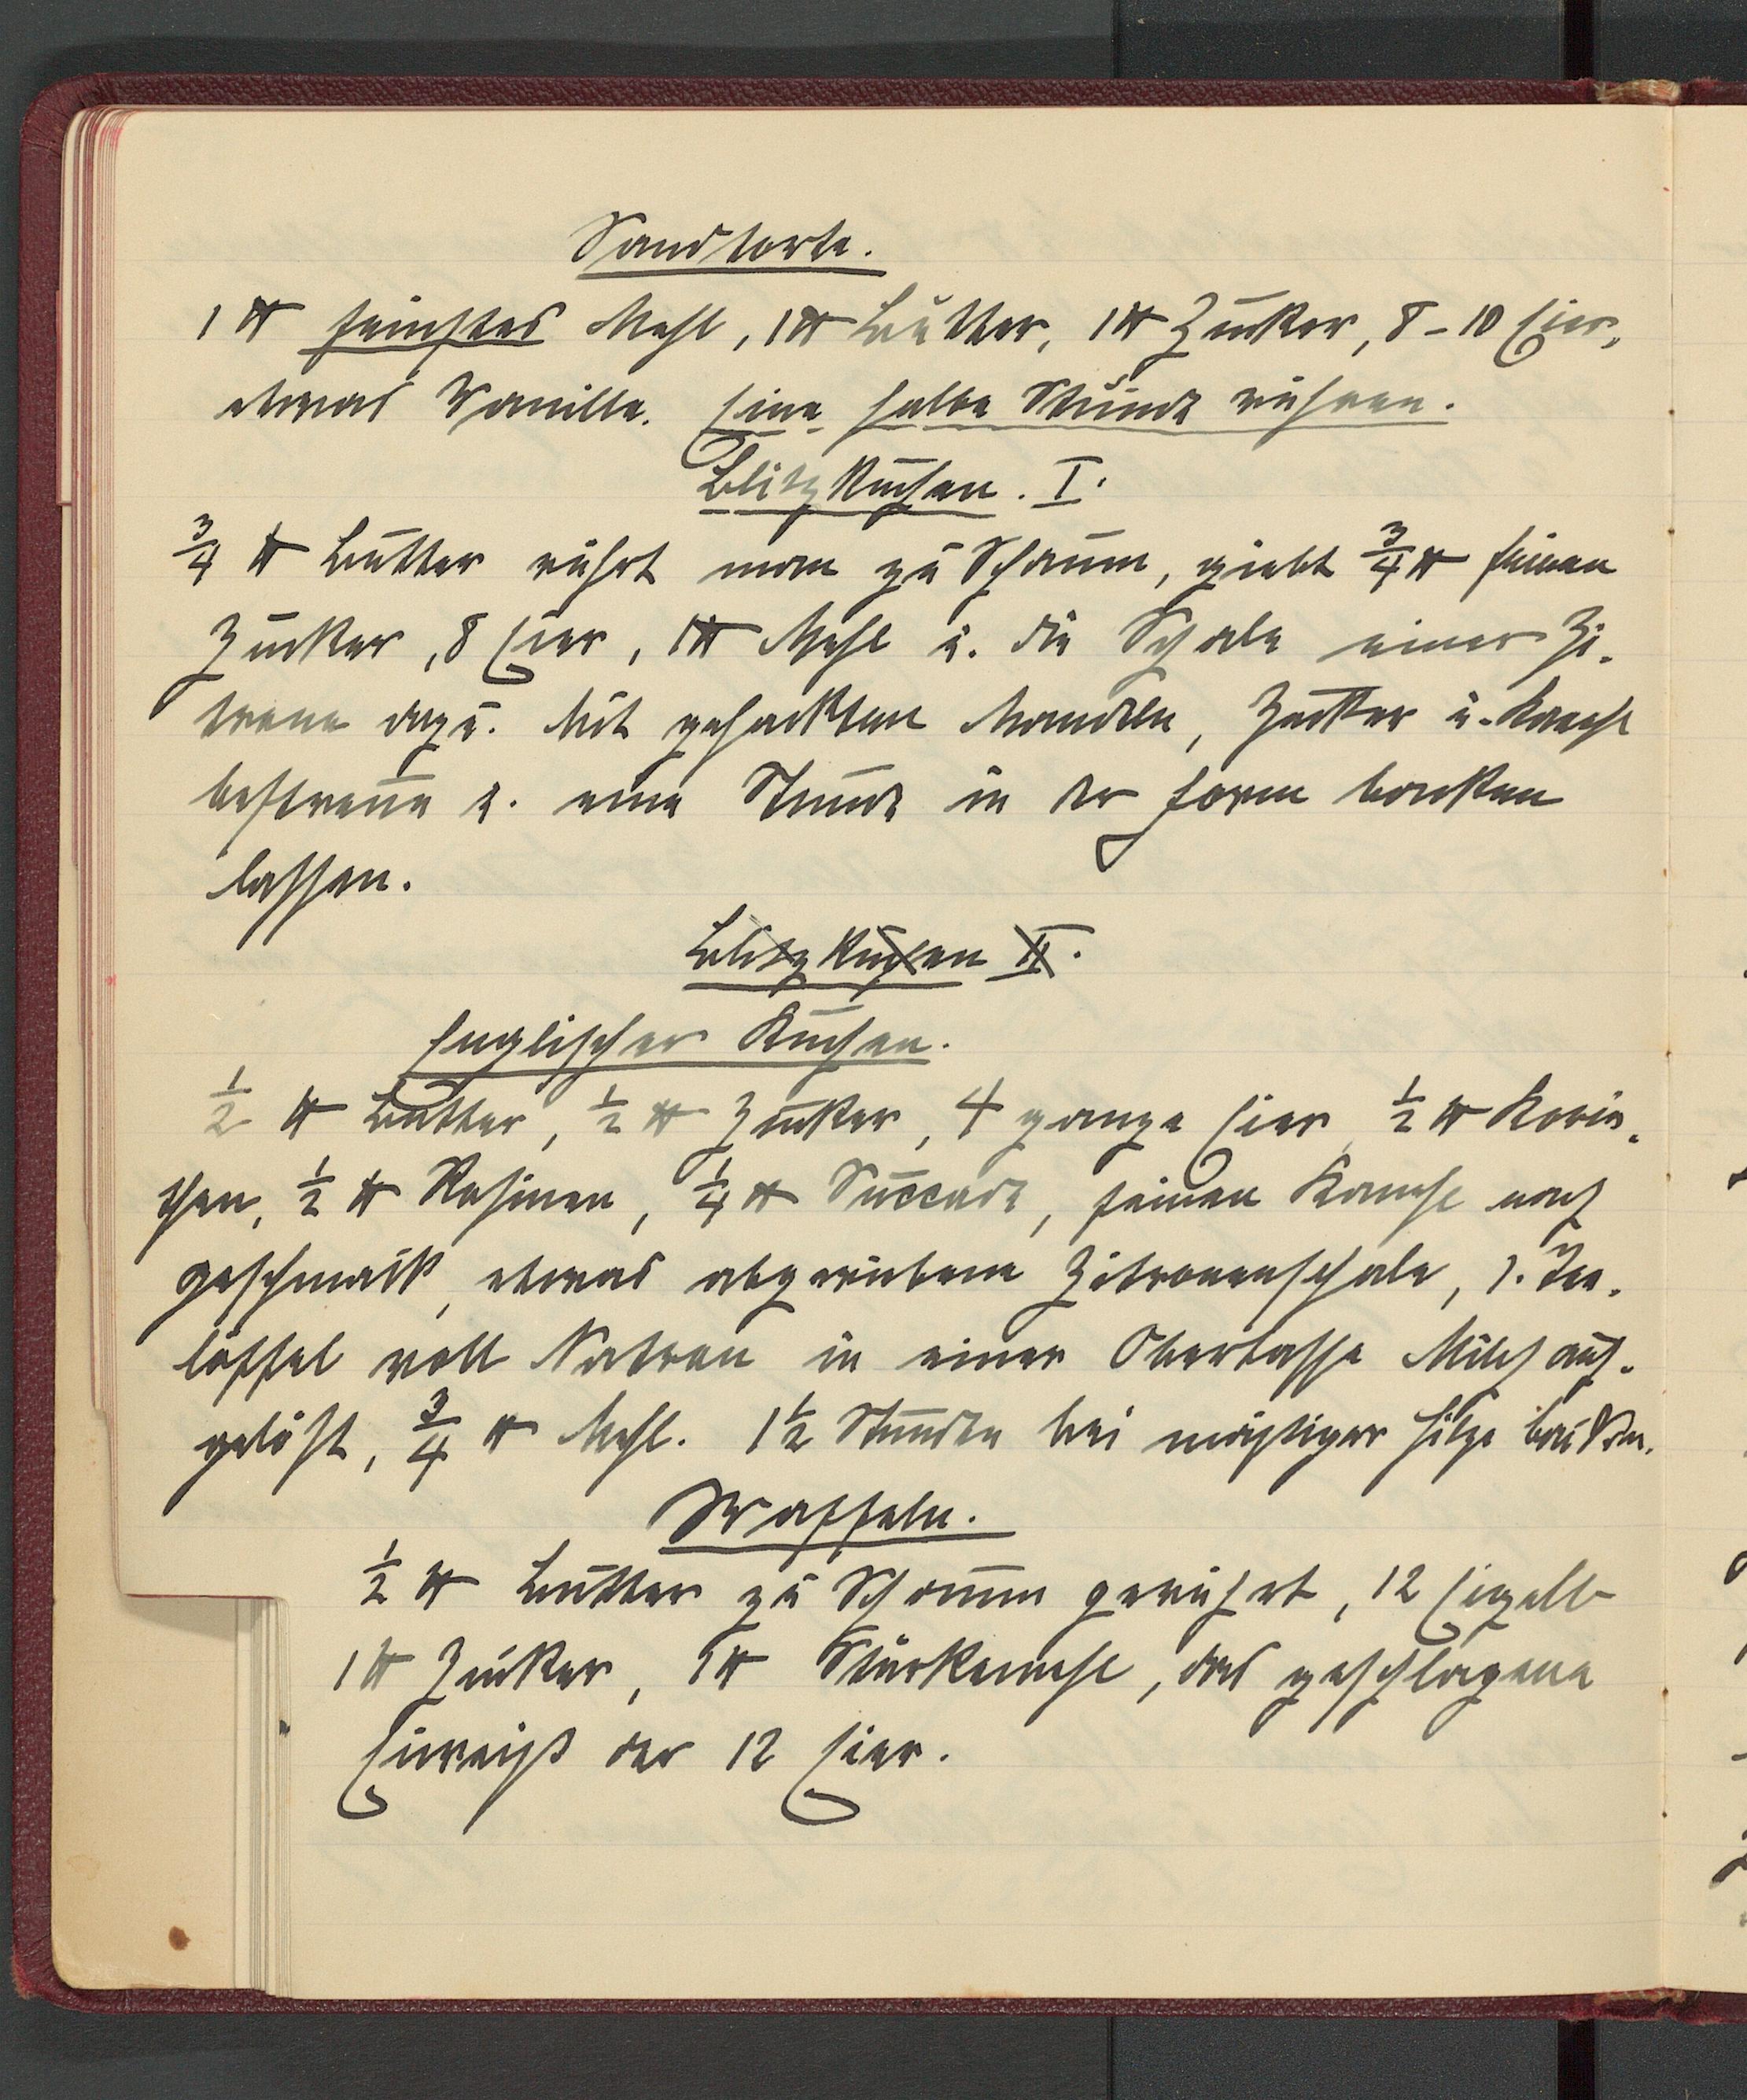 Sandtorte.
1 ℔ feinstes Mehl, 1 ℔ Butter, 1 ℔ Zucker, 8 - 10 Eier,
etwas Vanille. Eine halbe Stunde rühren.
Blitzkuchen. I.
3/4 ℔ Butter rührt man zu Schaum, giebt 3/4 ℔ feinen
Zucker, 8 Eier, 1 ℔ Mehl u. die Schale einer Zi-
trone dazu. Mit gehackten Mandeln, Zucker u. Kanehl
bestreuen u. eine Stunde in der Form backen
lassen.
Blitzkuchen II.
Englischer Kuchen.
1/2 ℔ Butter, 1/2 ℔ Zucker, 4 ganze Eier, 1/2 ℔ Korin-
then, 1/2 ℔ Rosinen, 1/4 ℔ Succade, feinen Kanehl nach
Geschmack, etwas abgeriebene Zitronenschale, 1. Tee-
löffel voll Natron in einer Obertasse Milch auf-
gelöst, 3/4 ℔ Mehl. 1 1/2 Stunden bei mäßiger Hitze backen.
Waffeln.
1/2 ℔ Butter zu Schaum gerührt, 12 Eigelb
1 ℔ Zucker, 1 ℔ Stärkemehl, das geschlagene
Eiweiß der 12 Eier.